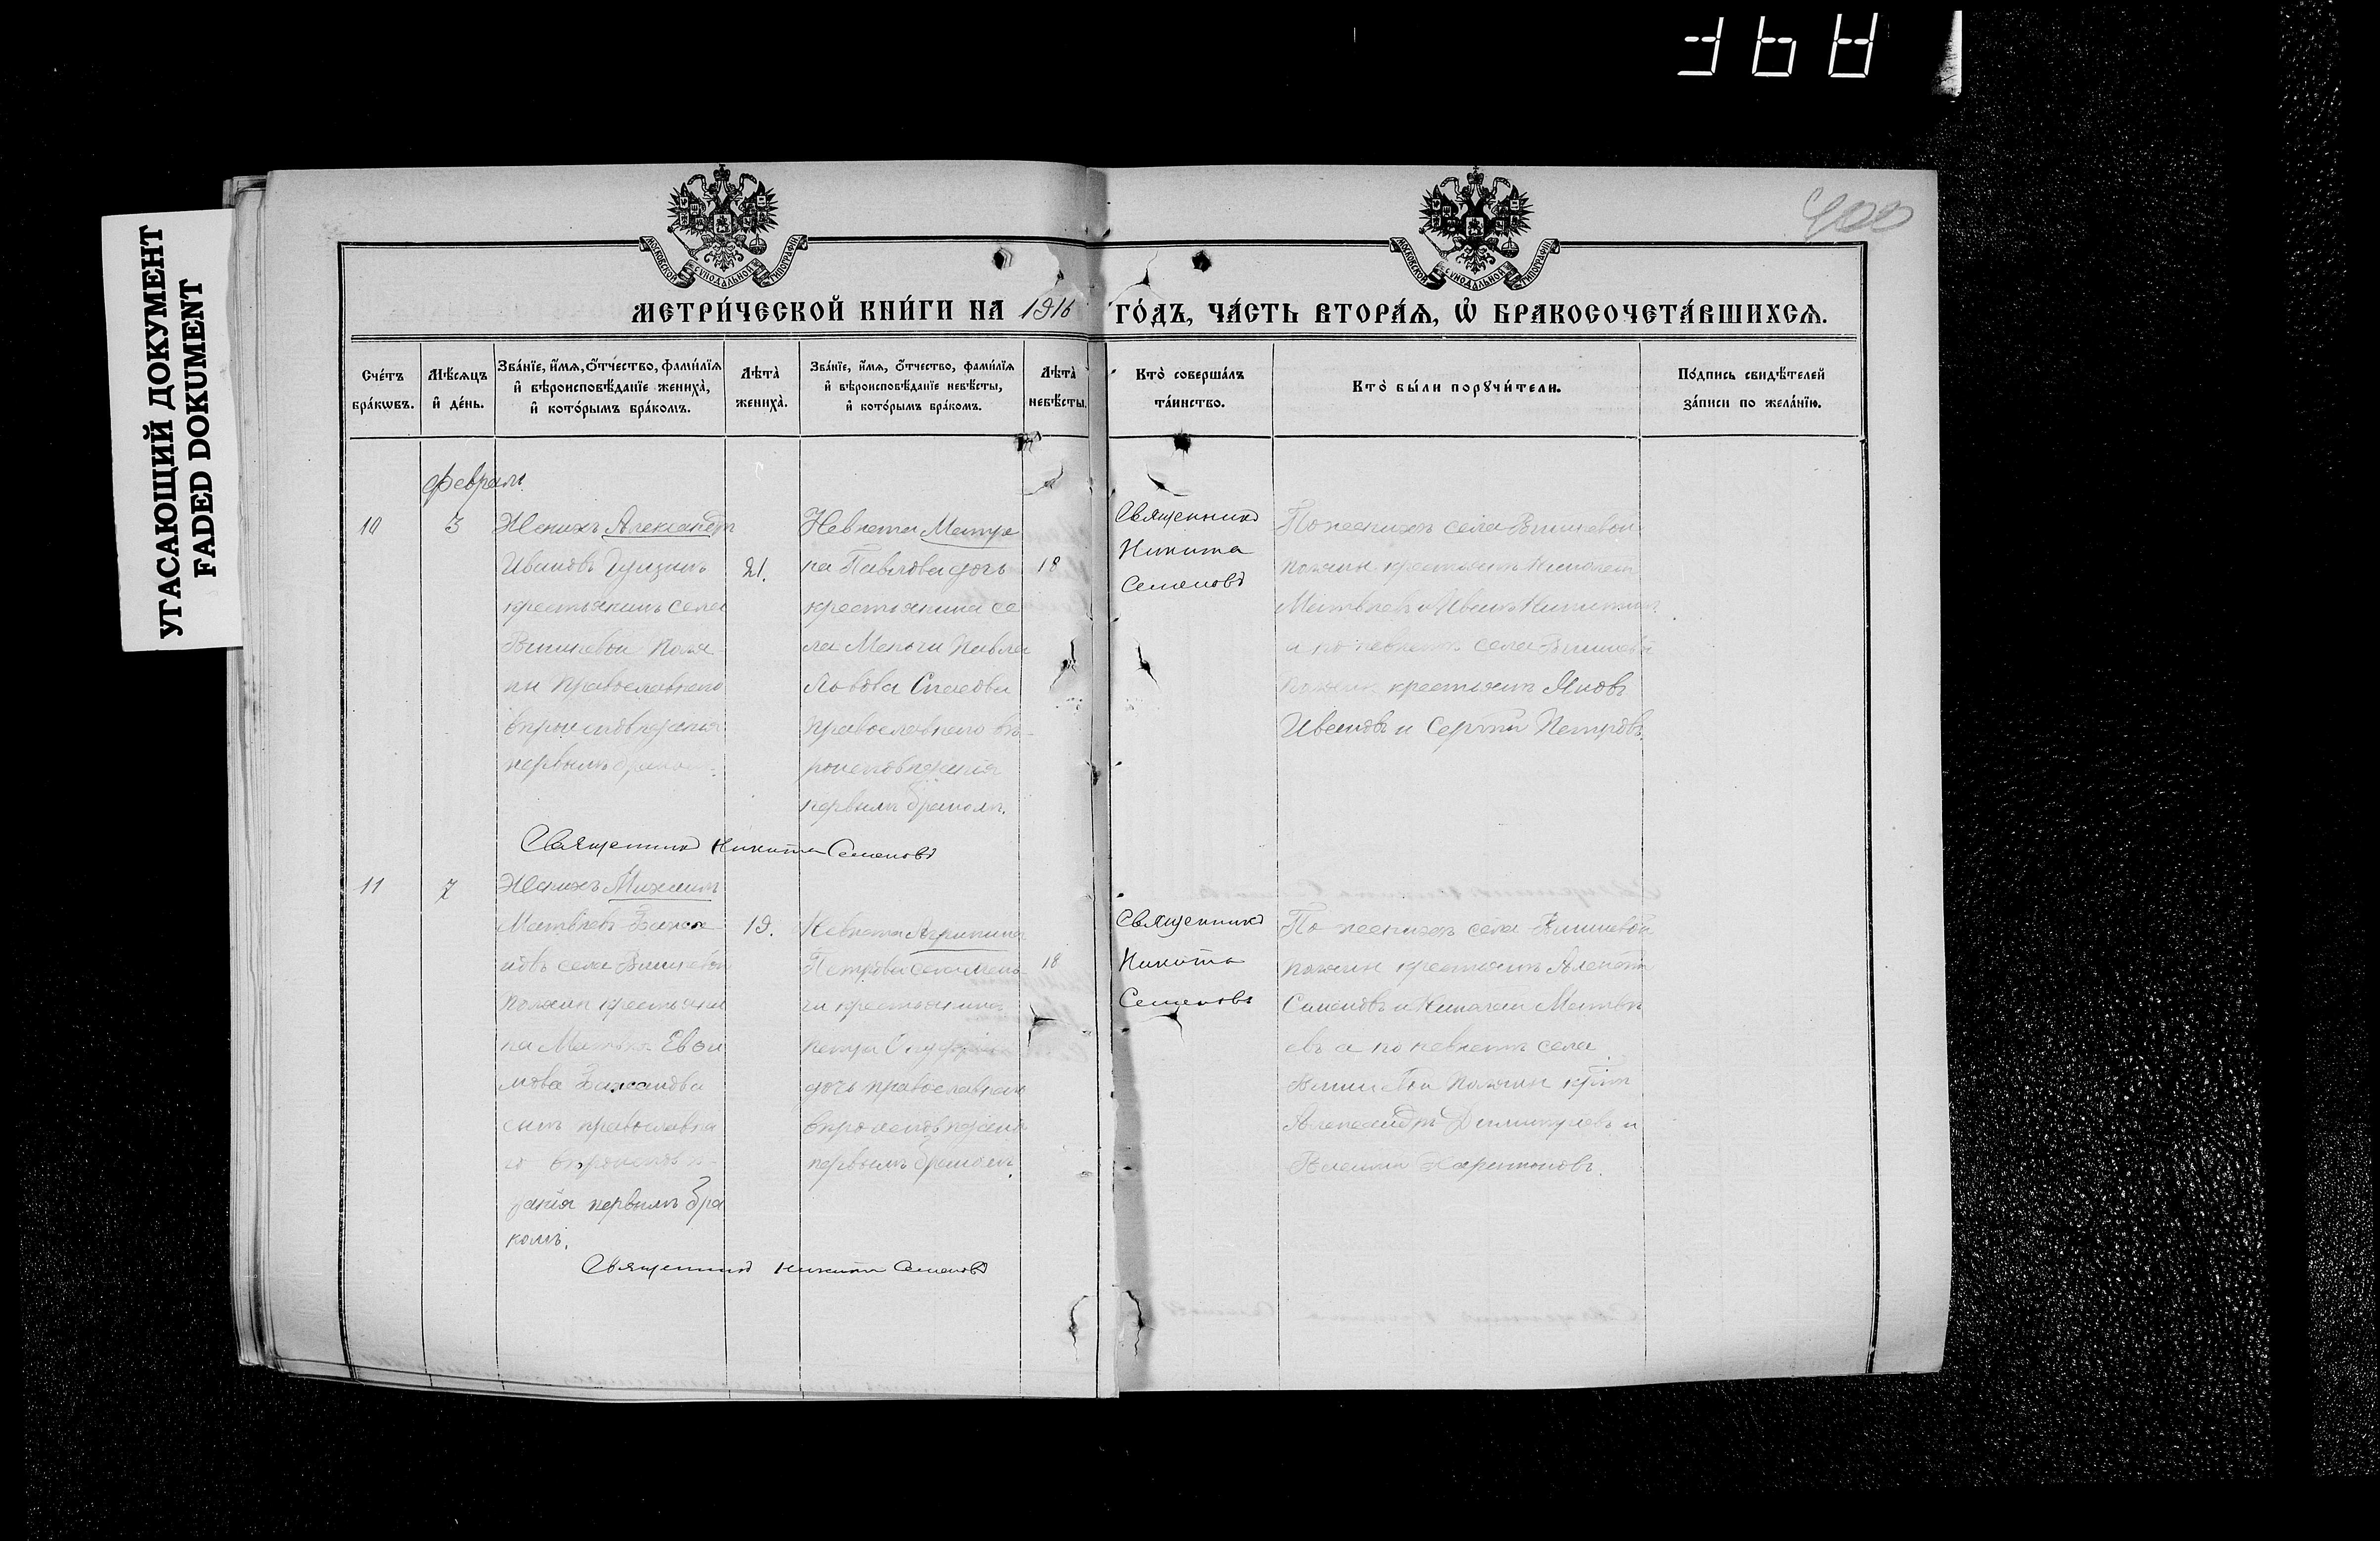 УГАСАЮЩИЙ ДОКУМЕНТ
FADED DOKUMENT
400
МОСКОВСКОЙ СѴНОДАЛЬНОЙ ТИПОГРАФІИ
МОСКОВСКОЙ СѴНОДАЛЬНОЙ ТИПОГРАФІИ
МЕТРИ́ЧЕСКОЙ КНИ́ГИ НА 1916 ГО́ДЪ, ЧА́СТЬ ВТОРА́Я, Ѡ҆ БРАКОСОЧЕТА́ВШИХСЯ.
Сче́тъ
бра́кѡвъ.
Мѣ́сяцъ
и҆ де́нь.
Зва́нїе, и҆́мя, ѻ҆́тчество, фами́лїя
и҆ вѣроисповѣ́данїе жениха̀,
и҆ кото́рымъ бра́комъ.
Лѣ́та
жениха̀.
Зва́нїе, и҆́мя, ѻ҆́тчество, фами́лїя
и҆ вѣроисповѣ́данїе невѣ́сты,
и҆ кото́рымъ бра́комъ.
Лѣ́та
невѣ́сты.
Кто̀ соверша́лъ
та́инство.
Кто̀ бы́ли порꙋчи́тели.
По́дпись свидѣ́телей
за́писи по жела́нїю.
Февраль
10
3
Женихъ Александръ
Ивановъ
крестьянинъ села
Вишневой Поля
ны Православнаго
вѣроисповѣданія
первымъ бракомъ.
21.
Невѣста Матро
на Павлова дочь
крестьянина се
ла Меночи Павла
Львова Спасова
православнаго вѣ-
роисповѣданія
первымъ бракомъ.
18
Священникъ
Никита
Семеновъ
По женихѣ села Вишневой
поляны крестьяне
Матвѣевъ и Иванъ Никитинъ
а по невѣстѣ села Вишневой
поляны крестьяне Яковъ
Ивановъ и Сергѣй Петровъ.
Священникъ Никита Семеновъ
11
7
Женихъ Михаилъ
Матвѣевъ Бажа
новъ села Вишневой
Поляны крестьяни
на Матвѣя Евдо
мова Бажанова
сынъ православна
го вѣроисповѣ-
данія первымъ бра
комъ.
19.
Невѣста Агрипина
Петрова села Мено
чи крестьянина
Петра
дочь православнаго
вѣроисповѣданія
первымъ бракомъ.
18
Священникъ
Никита
Семеновъ
По женихѣ села Вишневой
поляны крестьяне Алексѣй
Семеновъ и Николай Матвѣ
евъ а по невѣстѣ села
Вишневой Поляны кр
Александръ Димитріевъ и
Василій Харитоновъ.
Священникъ Никита Семеновъ